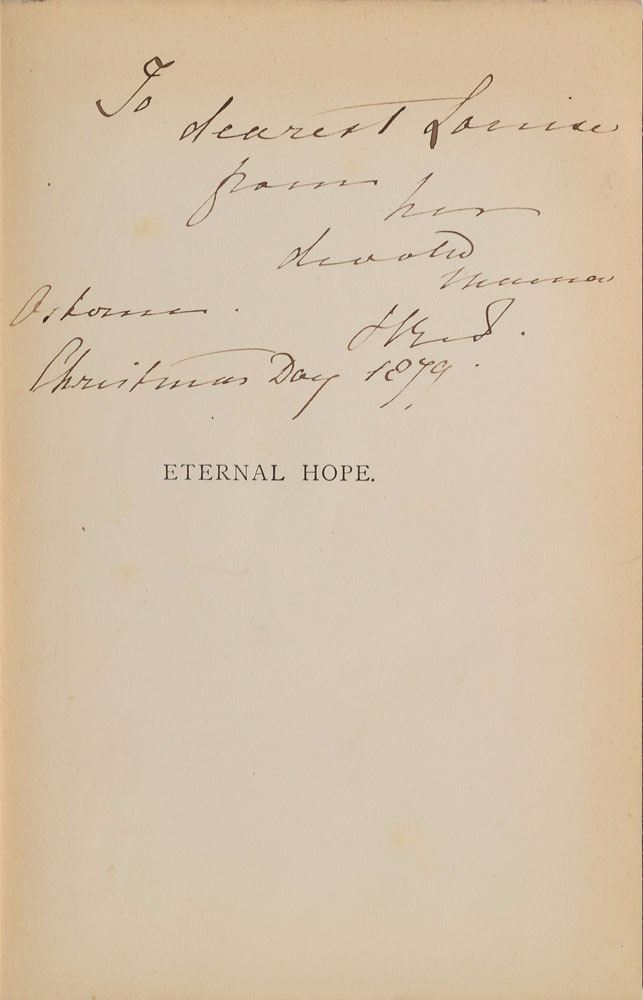 To
dearest Louise
from her
devoted
Mama
Osborne. VRI.
Christmas Day 1879.
ETERNAL HOPE.